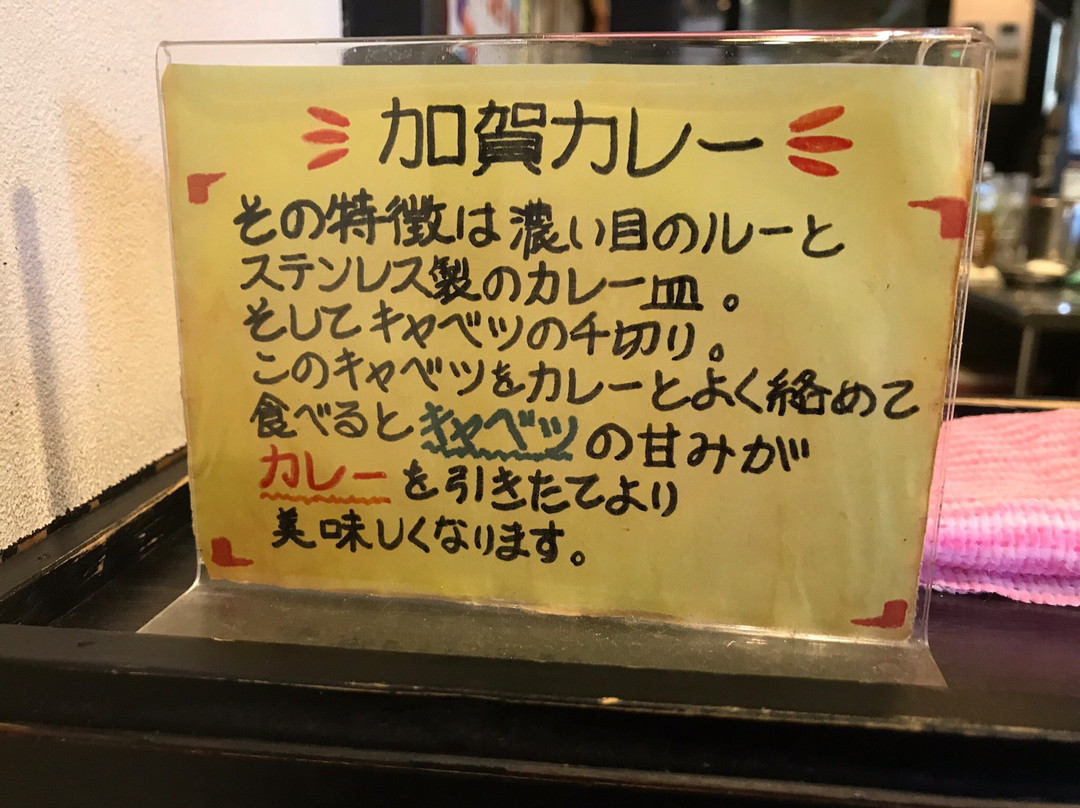 加賀カレー
その特徴は濃い目のルーと
ステンレス製のカレー皿。
そしてキャベツの千切り。
このキャベツをカレーとよく絡めて
食べるとキャベツの甘みが
カレーを引きたてより
美味しくなります。